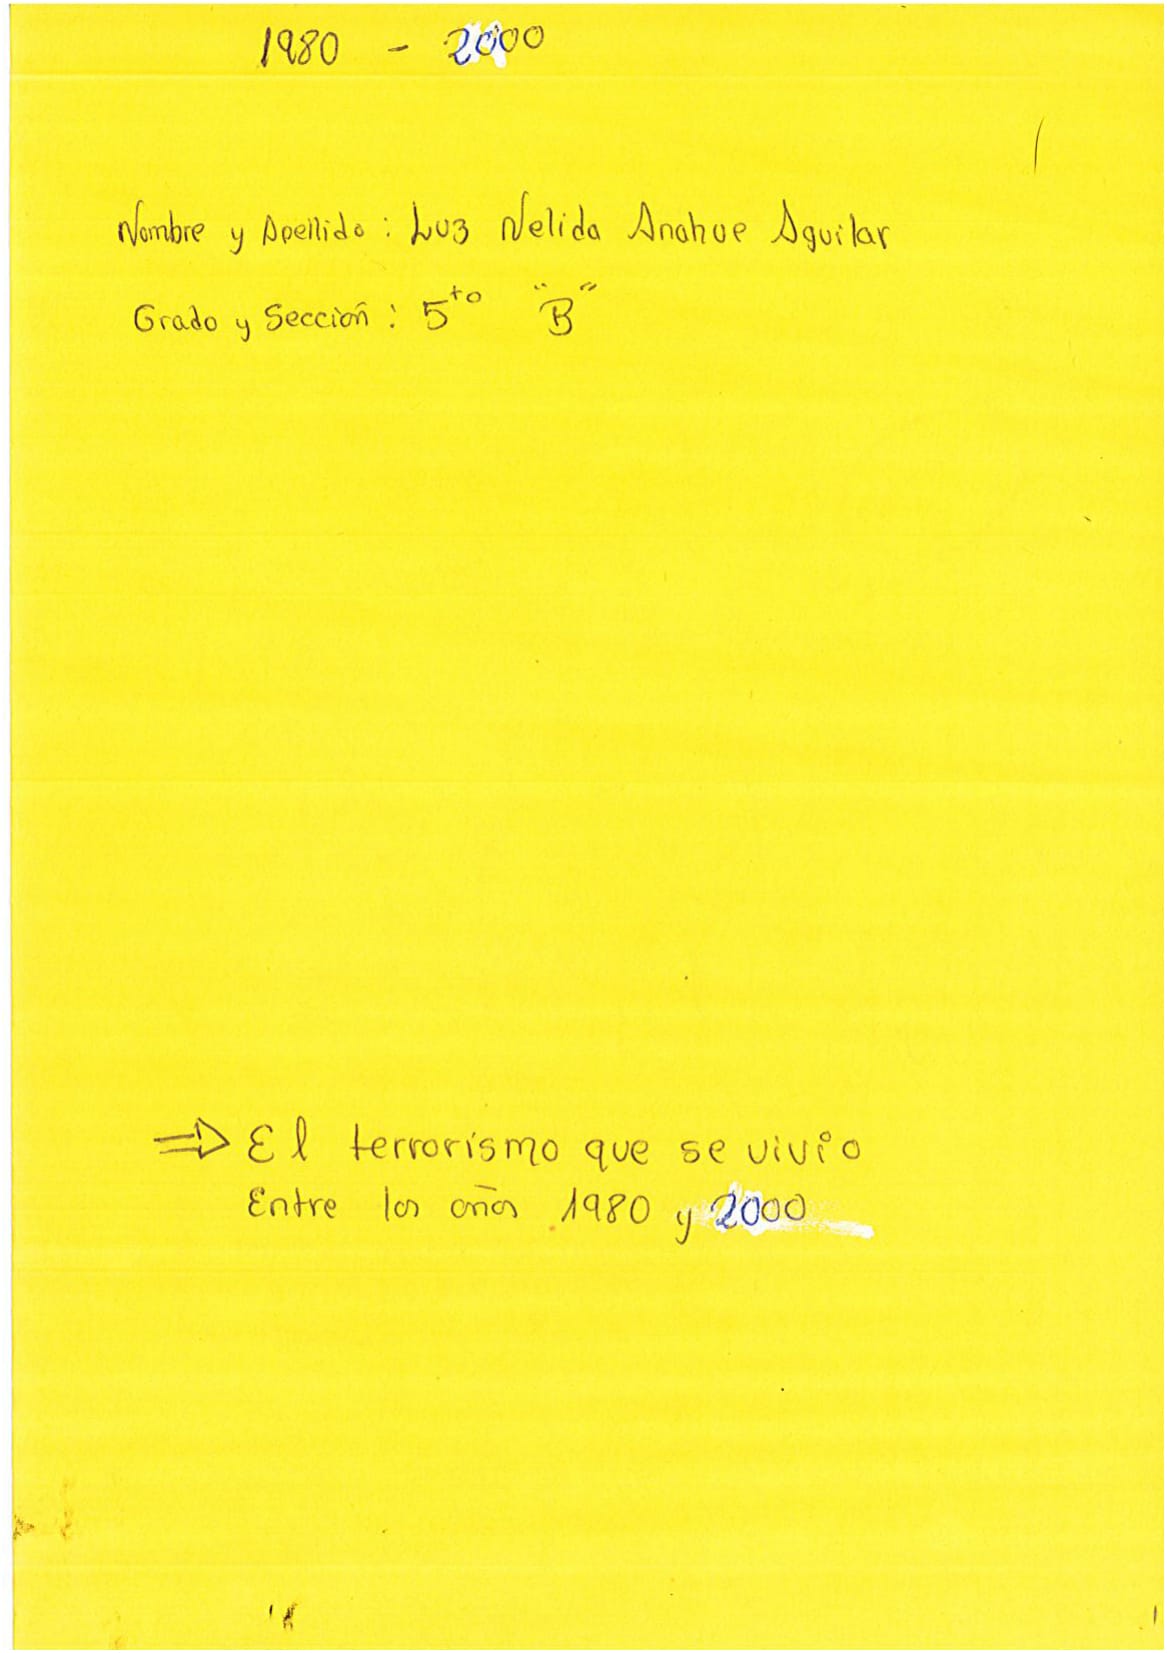 1980 - 2000
Nombre y Apellido : Luz Nelida Anahue Aguilar
Grado y Sección : 5to "B"
⇒ El terrorismo que se vivio
Entre los años 1980 y 2000